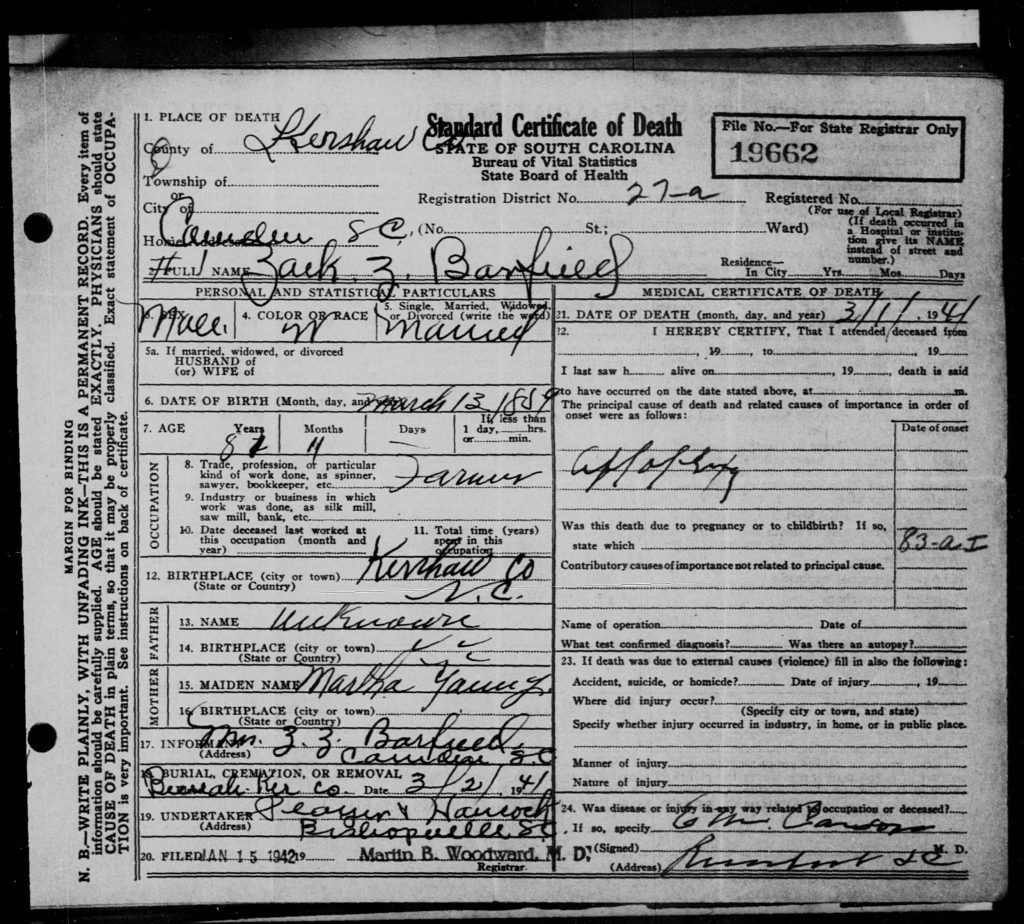 MARGIN FOR BINDING
N. B.—WRITE PLAINLY, WITH UNFADING INK—THIS IS A PERMANENT RECORD. Every item of
information should be carefully supplied. AGE should be stated EXACTLY. PHYSICIANS should state
CAUSE OF DEATH in plain terms, so that it may be properly classified. Exact statement of OCCUPA-
TION is very important. See instructions on back of certificate.
1. PLACE OF DEATH
County of Kershaw Co
Township of
or
City of
Camden S.C.
Home Address
Standard Certificate of Death
STATE OF SOUTH CAROLINA
Bureau of Vital Statistics
State Board of Health
File No.—For State Registrar Only
19662
Registration District No. 27-a
Registered No.
(For use of Local Registrar)
(No. St.; Ward)
(If death occurred in
a Hospital or institu-
tion give its NAME
instead of street and
number.)
#1
2. FULL NAME Zack Z. Barfield
Residence—
In City Yrs. Mos. Days
PERSONAL AND STATISTICAL PARTICULARS
3. SEX Male.
4. COLOR OR RACE W
5. Single, Married, Widowed,
or Divorced (write the word)
Married
5a. If married, widowed, or divorced
HUSBAND of
(or) WIFE of
6. DATE OF BIRTH (Month, day, and March 13, 1859
7. AGE Years Months Days If less than
1 day, hrs.
or min.
11
OCCUPATION
8. Trade, profession, or particular
kind of work done, as spinner,
sawyer, bookkeeper, etc. Farmer
9. Industry or business in which
work was done, as silk mill,
saw mill, bank, etc.
10. Date deceased last worked at
this occupation (month and
year)
11. Total time (years)
spent in this
occupation
12. BIRTHPLACE (city or town) Kershaw Co
(State or Country)
FATHER
13. NAME Unknown
14. BIRTHPLACE (city or town)
(State or Country)
MOTHER
15. MAIDEN NAME Martha Young.
16. BIRTHPLACE (city or town)
(State or Country)
17. INFORMANT Mrs. Z. Z. Barfield
(Address) Camden S.C
18. BURIAL, CREMATION, OR REMOVAL
Ker Co. Date 3/2/ 1941
19. UNDERTAKER Hancock
(Address) Bishopville S.C.
20. FILED JAN 15 1942 19
Martin B. Woodward, M. D.
Registrar
MEDICAL CERTIFICATE OF DEATH
21. DATE OF DEATH (month, day, and year) 3/1/ 1941
22. I HEREBY CERTIFY, That I attended deceased from
, 19 , to , 19
I last saw h alive on , 19 , death is said
to have occurred on the date stated above, at m.
The principal cause of death and related causes of importance in order of
onset were as follows:
Date of onset
Apoplexy
Was this death due to pregnancy or to childbirth? If so,
state which
83-a I
Contributory causes of importance not related to principal cause.
Name of operation Date of
What test confirmed diagnosis? Was there an autopsy?
23. If death was due to external causes (violence) fill in also the following:
Accident, suicide, or homicide? Date of injury , 19
Where did injury occur?
(Specify city or town, and state)
Specify whether injury occurred in industry, in home, or in public place.
Manner of injury
Nature of injury
24. Was disease or injury in any way related to occupation or deceased?
If so, specify
(Signed) M. D.
(Address) S C